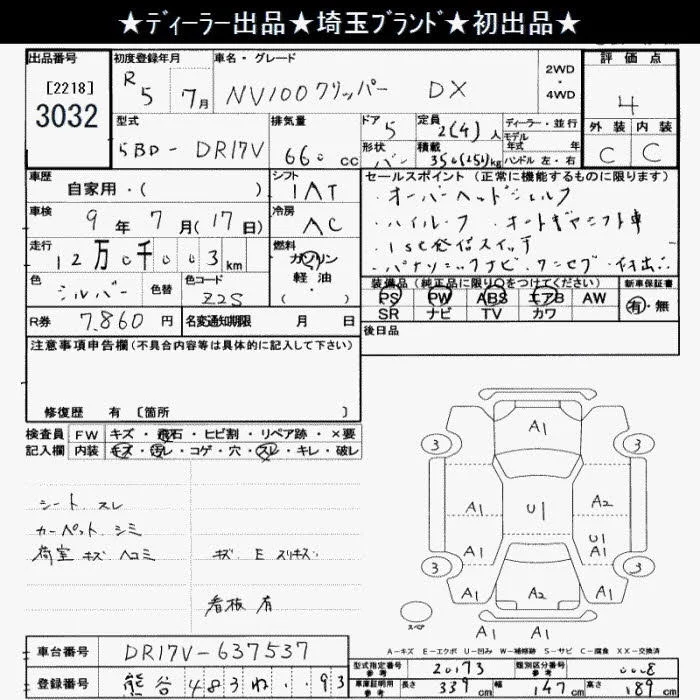 ★ディーラー出品★埼玉ブランド★初出品★
出品番号 [2218] 3032
初度登録年月 R 5 7月
車名・グレード NV100クリッパー DX
2WD・4WD
評価点 4
外装 内装
C C
型式 5BD-DR17V
排気量 660cc
ドア 5
形状 バン
定員 2(4)人
積載 350(250)kg
ディーラー・並行
モデル年式 年
ハンドル 左・右
車歴 自家用・( )
シフト 1AT
車検 9年7月(17日)
冷房 AC
走行 12万0千003km
燃料 ガソリン・軽油・( )
色 シルバー
色替
色コード Z2S
R券 7,860円
名変通知期限 月 日
セールスポイント(正常に機能するものに限ります)
・オーバーヘッドシェルフ
・ハイルーフ・オートギヤシフト車
・1set発信スイッチ
・パナソニックナビ・ワンセグ
装備品(純正品に限り○をつけてください)
PS PW ABS エアB AW
SR ナビ TV カワ
新車保証書 有・無
後日品
注意事項申告欄(不具合内容等は具体的に記入して下さい)
修復歴 有 [箇所 ]
検査員記入欄
FW キズ・飛石・ヒビ割・リペア跡・×要
内装 キズ・汚レ・コゲ・穴・スレ・キレ・破レ
シート スレ
カーペット シミ
荷室 キズ ヘコミ キズ E スリキズ
看板 有
A1
3 3
A1 U1 A2
A1 U1 A1
3 3
A1 A2 A1
スペア
A1 A1
A-キズ E-エクボ U-凹み W-補修跡 S-サビ C-腐食 XX-交換済
車台番号 DR17V-637537
登録番号 熊谷 483 ね ・・93
型式指定番号 参考 20173
類別区分番号 参考 0008
車庫証明用 参考 長さ 339cm 幅 147cm 高さ 189cm